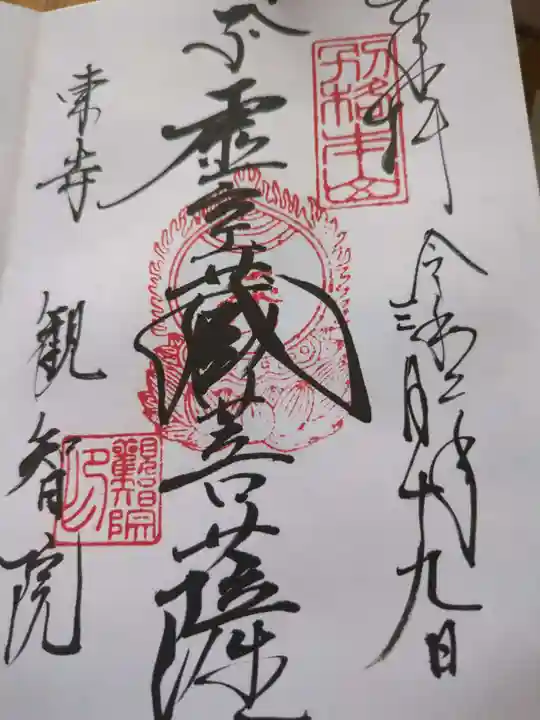 奉拝
別格本山
令和二年
三月十九日
虚空蔵菩薩
東寺
観智院
觀智院印